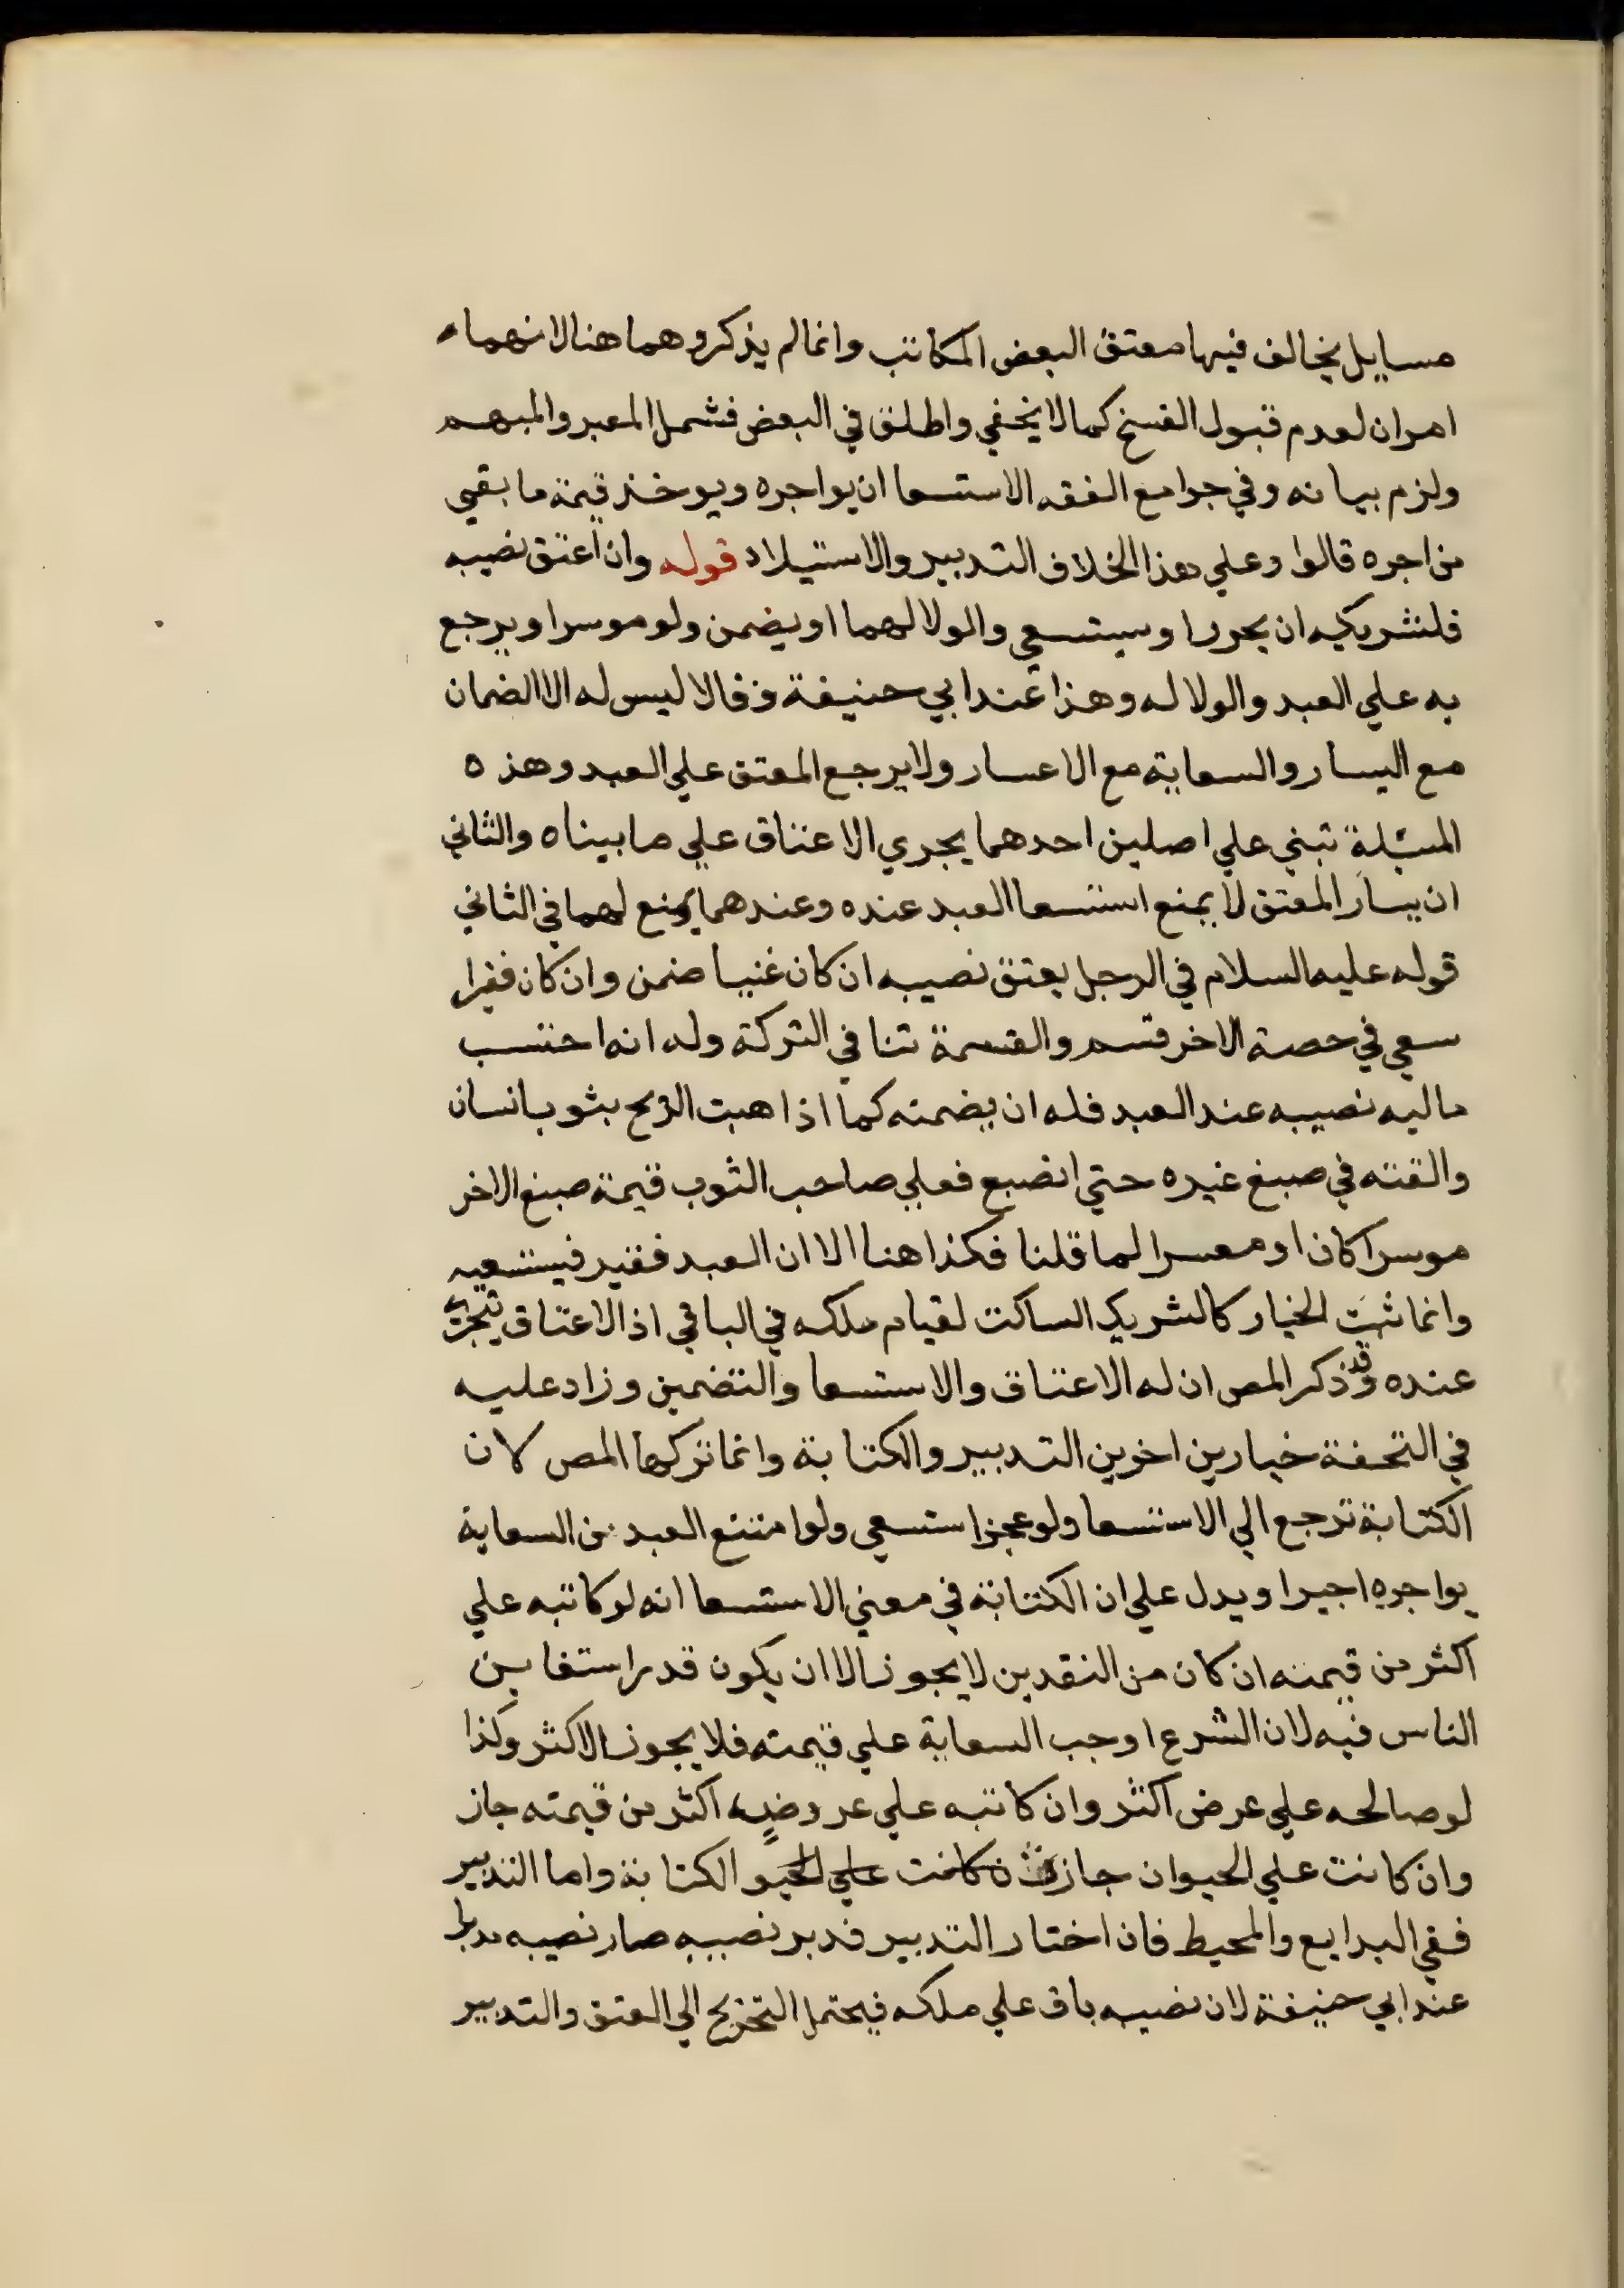 مسايل يخالف فيها معتق البعض المكاتب وانما لم يذكروهما هنا لانهما
امران لعدم قبول الفسخ كما لا يخفي واطلق في البعض فشمل المعبر والمبهم
ولزم بيانه وفي جوامع الفقه الاستسعا ان يواجره ويوخذ قيمة ما بقي
من اجره قالوا وعلي هذا الخلاف التدبير والاستيلاد قوله وان اعتق نصيبه
فلشريكه ان يحرر او سيتسعي والولا لهما او يضمن ولو موسرا ويرجع
به علي العبد والولا له وهذا عند ابي حنيفة وقالا ليس له الا الضمان
مع اليسار والسعاية مع الاعسار ولا يرجع المعتق علي العبد وهذه
المسئلة تبني علي اصلين احدهما يجري الاعتاق علي ما بيناه والثاني
ان يسار المعتق لا يمنع استسعا العبد عنده وعندهما يمنع لهما في الثاني
قوله عليه السلام في الرجل يعتق نصيبه ان كان غنيا ضمن وان كان فقيرا
سعي في حصة الاخر قسم والقسمة تنافي التركة وله انه احتسب
ماليه نصيبه عند العبد فله ان يضمنه كما اذا هبت الريح بثوب انسان
والقته في صبغ غيره حتي انصبع فعلي صاحب الثوب قيمة صبغ الاخر
موسرا كان او معسرا لما قلنا فكذا هنا الا ان العبد فقير فيستسعيه
وانما ثبت الخيار كالشريك الساكت لقيام ملكه في الباقي اذ الاعتاق يتجزئ
عنده وقد ذكر المص ان له الاعتاق والاستسعا والتضمين وزاد عليه
في التحفة خيارين اخرين التدبير والكتابة وانما تركها المص لان
الكتابة ترجع الي الاستسعا ولو عجز استسعي ولو امتنع العبد من السعاية
يواجره اجيرا ويدل علي ان الكتابة في معني الاستسعا انه لو كاتبه علي
اكثر من قيمته ان كان من النقدين لا يجوز الا ان يكون قدرا ستغابن
الناس فيه لان الشرع اوجب السعاية علي قيمته فلا يجوز الاكثر وكذا
لو صالحه علي عرض اكثر وان كاتبه علي عروض اكثر من قيمته جاز
وان كانت علي الحيوان جازت الكتابة واما التدبير
ففي البدايع والمحيط فان اختار التدبير فدبر نصيبه صار نصيبه مدبرا
عند ابي حنيفة لان نصيبه باق علي ملكه فيحتمل التخريج الي العتق والتدبير